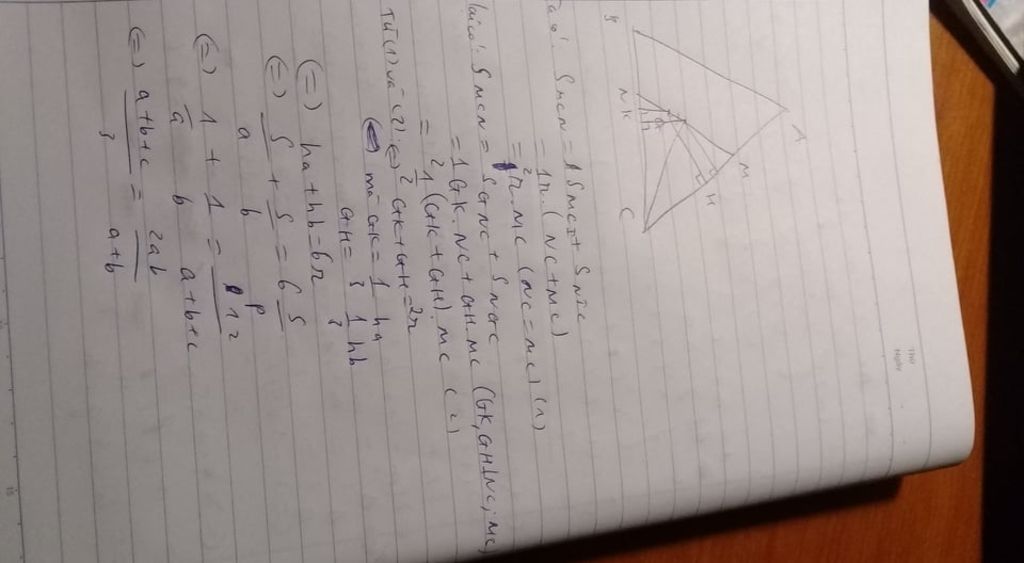 A
M
H
B
N K
C
S MCN = S MCI + S NIC
= 1/2 r. (NC + MC)
= r. MC (NC = MC) (1)
S MCN = S GNC + S MGC
= 1/2 GK. NC + GH. MC (GK, GH ⊥ NC, MC)
= 1/2 (GK + GH). MC (2)
Từ (1) và (2) (=) GK + GH = 2r
mà GK = 1/3 ha
GH = 1/3 hb
(=) ha + hb = 6r
(=) S/a + S/b = 6 S/p
(=) 1/a + 1/b = 12/a+b+c
(=) a+b+c/3 = 2ab/a+b